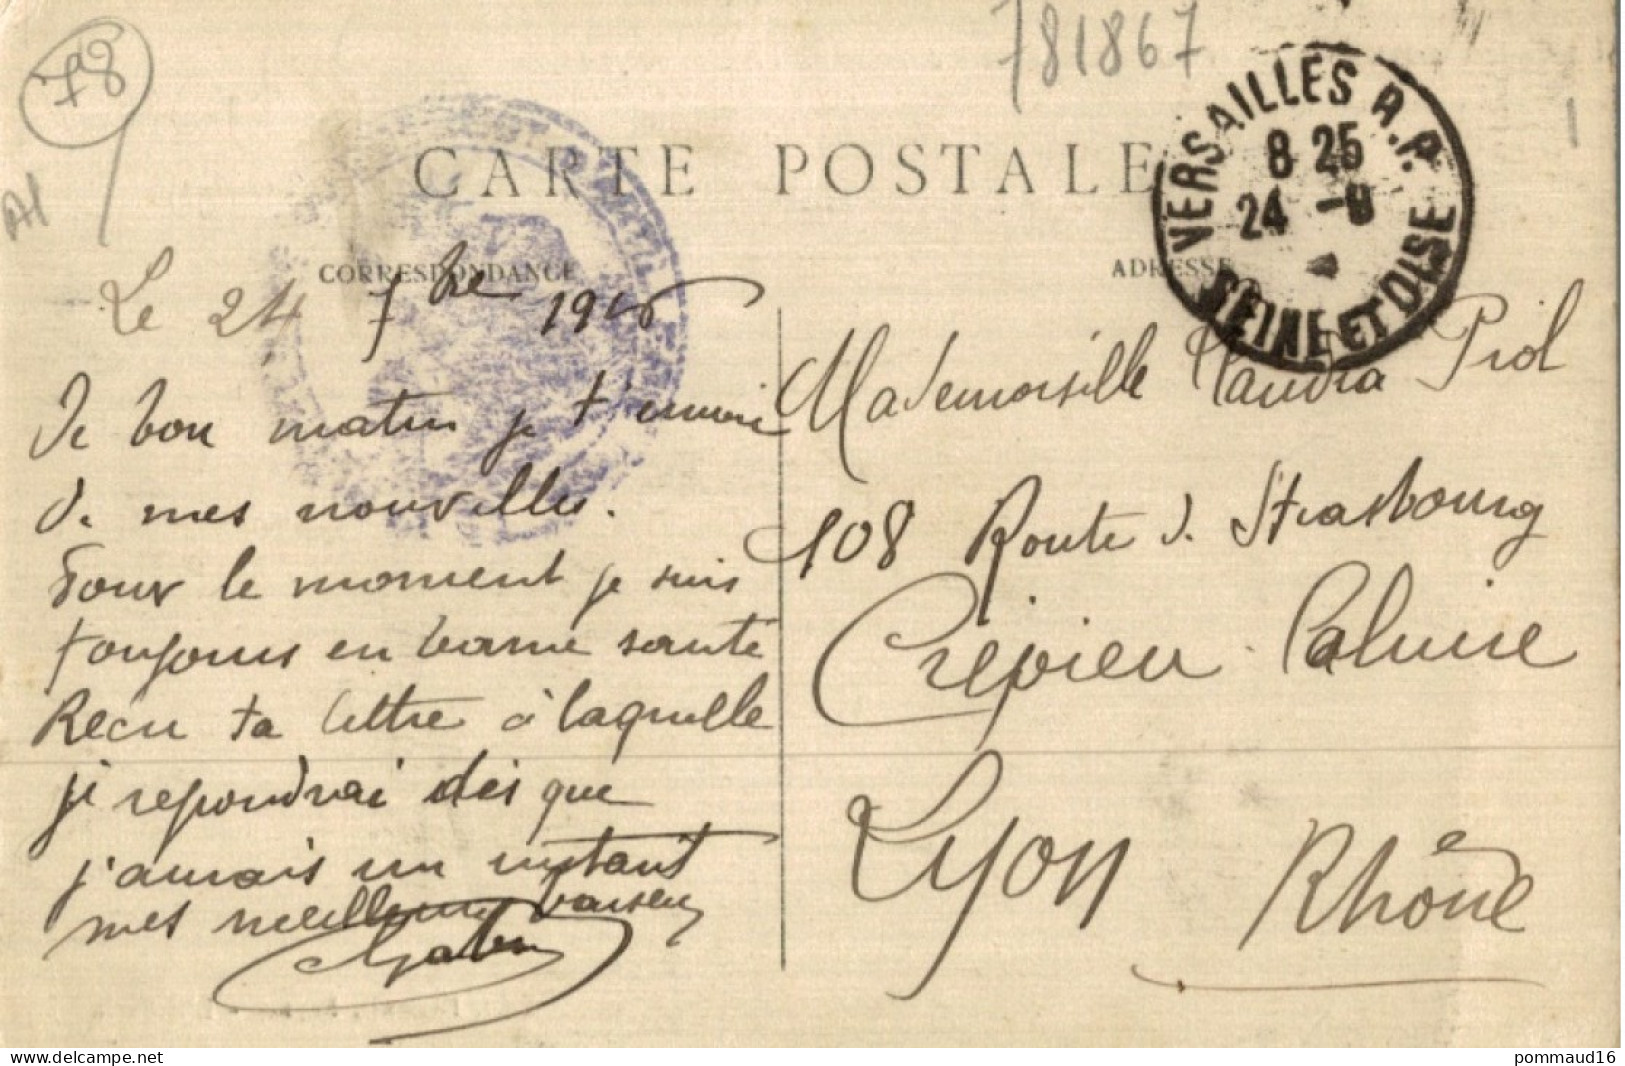 78
781867
A1
CARTE POSTALE
VERSAILLES R.P.
8 25
24 -9
SEINE ET OISE
CORRESPONDANCE
ADRESSE
Le 24 7bre 1916
De bon matin je t'envoi
de mes nouvelles.
Pour le moment je suis
toujours en bonne santé
Recu ta lettre à laquelle
je repondrai dés que
j'aurais un instant
mes meilleurs baisers
Mademoiselle Claudia Piol
108 Route de Strasbourg
Crépieu Caluire
Lyon
Rhône
www.delcampe.net
pommaud16